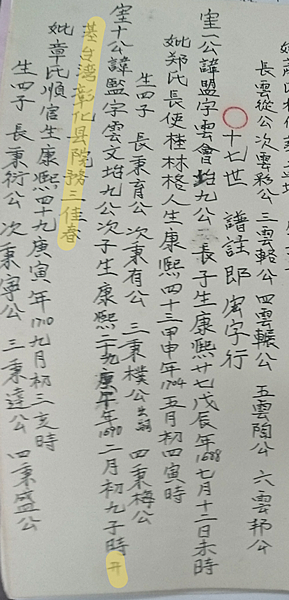 長雲從公 次雲彩公 三雲輅公 四雲公 五雲陶公 六雲邦公
十七世 譜註郎宏字行
室一公諱盟字雲會九公長子生康熙廿七戊辰年1688七月十二日未時
妣郑氏長使桂林格人生康熙四十三甲申年1704五月初四寅時
生四子 長秉育公 次秉有公 三秉樸公出嗣 四秉梅公
室十公諱盟字雲文九公次子生康熙二十九庚午年1690二月初九子時开
基台湾彰化县院務三佳春
妣章氏順官生康熙四十九庚寅年1710九月初三亥時
生四子 長秉衍公 次秉寧公 三秉達公 四秉盛公